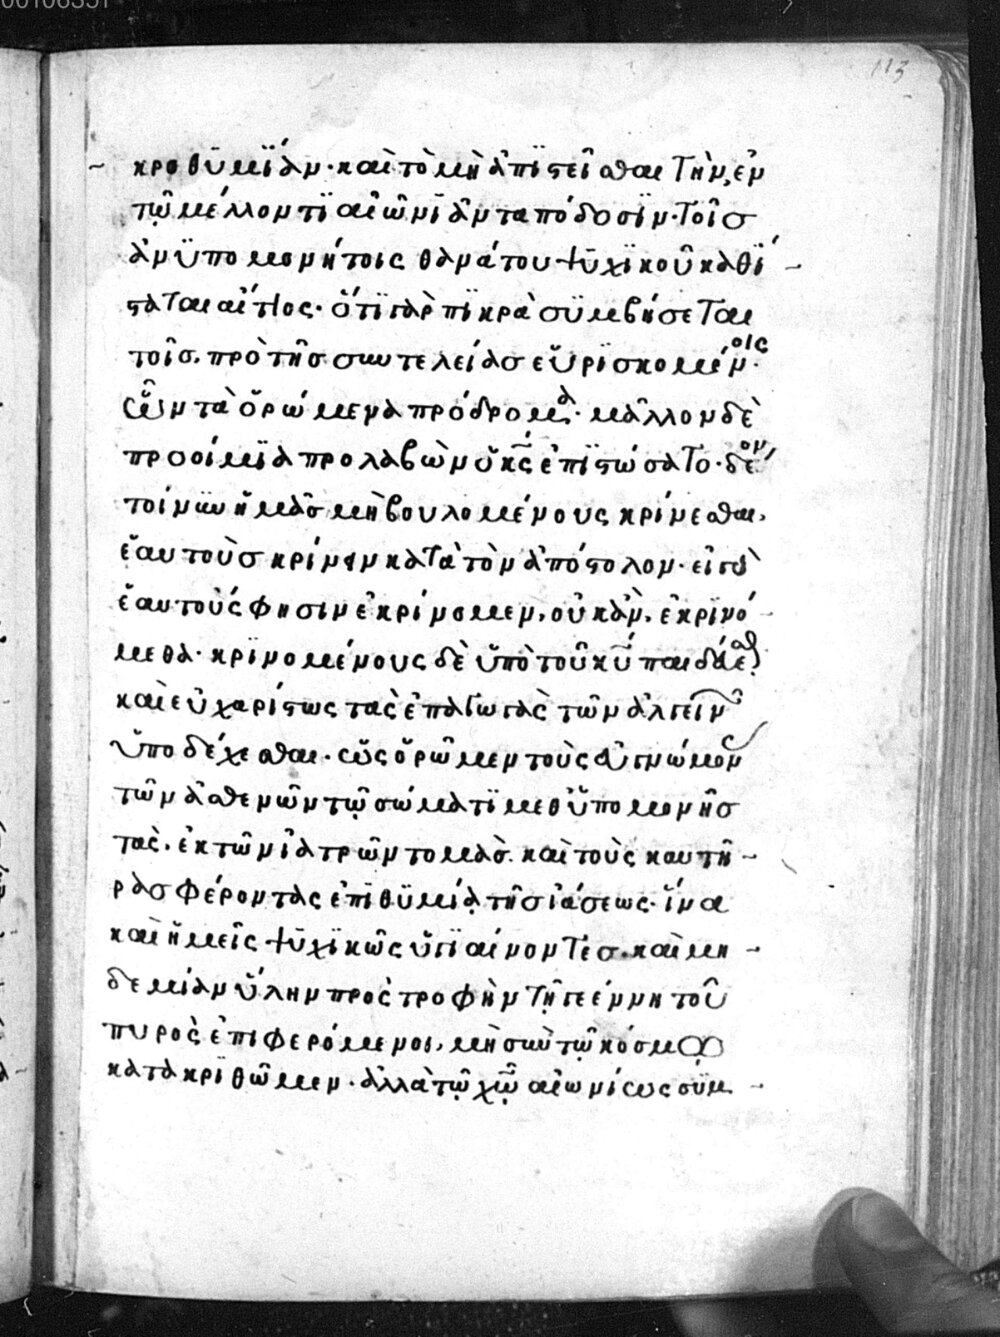 00106351
113
κροθϋμϊάν· καὶ τὸ μὴ ἀπϊστεῖσθαι τὴν, ἐν
τῷ μέλλοντϊ αἰῶνϊ ἀνταπόδοσϊν· τοῖσ
ἀνϋπομονήτοις θανάτου ψϋχϊκοῦ καθΐ
σταται αἴτιος· ὅτϊ γὰρ πϊκρὰ σϋμβήσεται
τοῖσ, πρὸ τῆσ συντελείασ εὑρϊσκομένοις·
ὧν τὰ ὁρώμενα πρόδρομα· μᾶλλον δὲ
προοίμϊα προλαβὼν ὁ κς ἐπϊστώσατο· δέον
τοίνυν ἡμᾶσ μὴ βουλομένους κρίνεσθαι,
ἑαυτοὺσ κρίνειν κατὰ τὸν ἀπόστολον· εἰ γὰρ
ἑαυτούς φησιν ἐκρίνομεν, οὐκ ἂν, ἐκρϊνό
μεθα· κρϊνομένους δὲ ὑπὸ τοῦ κυ παιδεύεσθαι
καὶ εὐχαρίστως τὰς ἐπαγωγὰς τῶν ἀλγεινῶν
ὑποδέχεσθαι· ὡς ὁρῶμεν τοὺς εὐγνώμονας
τῶν ἀσθενῶν τῷ σώματϊ μεθ᾽ ὑπομονῆσ
τὰς, ἐκ τῶν ἰατρῶν τομὰσ. καὶ τοὺς καυτῆ
ρασ φέροντας ἐπϊθϋμίᾳ τῆσ ἰάσεως· ἵνα
καὶ ἡμεῖς ψϋχϊκῶς ὑγϊαίνοντεσ· καὶ μη
δεμίαν ὕλην πρὸς τροφὴν τῇ γεέννῃ τοῦ
πυρὸς ἐπιφερόμενοι, μὴ σὺν τῷ κόσμῳ
κατακρϊθῶμεν· ἀλλὰ τῷ χῷ αἰωνίως σϋμ